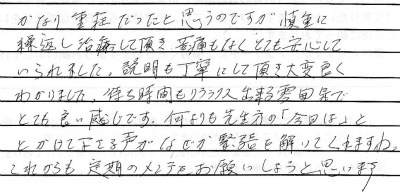 かなり重症だったと思うのですが慎重に
繰返し治療して頂き苦痛もなくとても安心して
いられました。説明も丁寧にして頂き大変良く
わかりました。待ち時間もリラックス出来る雰囲気で
とても良い感じです。何よりも先生方の「今日は」と
とかけて下さる声がなぜか緊張を解いてくれますね。
これからも定期のメンテお願いしようと思います